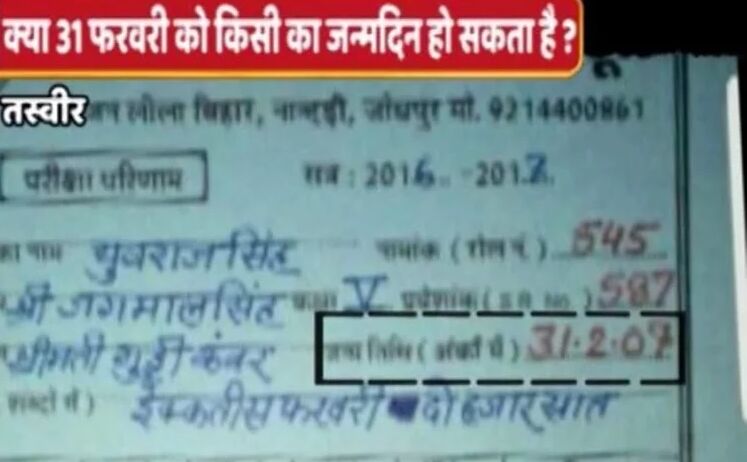 क्या 31 फरवरी को किसी का जन्मदिन हो सकता है ?
तस्वीर
लीला विहार, नान्दड़ी, जोधपुर मो. 9214400861
परीक्षा परिणाम
सत्र : 2016 -2017
का नाम युवराज सिंह नामांक ( रोल नं. ) 545
श्री जगमाल सिंह कक्षा V प्रवेशांक ( S.R. No. ) 587
श्रीमती गुड्डी कंवर जन्म तिथि ( अंकों में ) 31.2.07
शब्दों में ) इक्कतीस फरवरी दो हजार सात